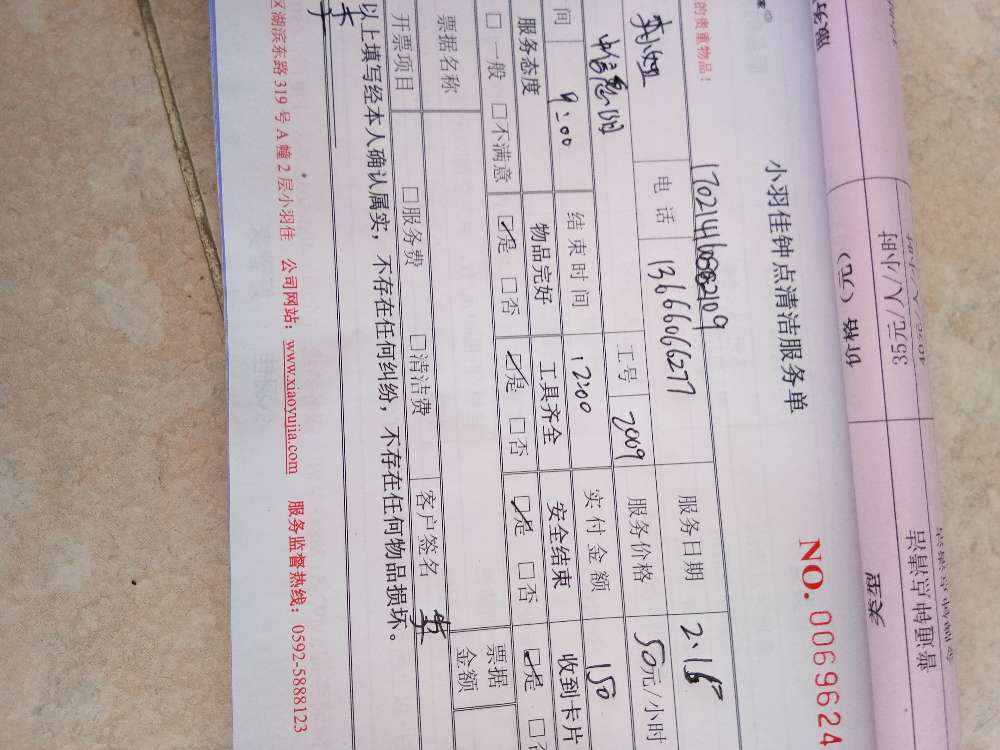 小羽佳钟点清洁服务单
NO. 0069624
的贵重物品！
170214160082109
服务日期 2.15
电话 13666066277
服务价格 50元/小时
工号 2009
间 9:00 结束时间 12:00 实付金额 150
服务态度 物品完好 工具齐全 安全结束 收到卡片
□一般 □不满意 ☑是 □否 ☑是 □否 ☑是 □否 ☑是 □
票据名称 票据金额
开票项目 □服务费 □清洁费 客户签名
以上填写经本人确认属实，不存在任何纠纷，不存在任何物品损坏。
区湖滨东路 319 号 A 幢 2 层小羽佳 公司网站：www.xiaoyujia.com 服务监督热线：0592-5888123
价格（元）
35元/人/小时